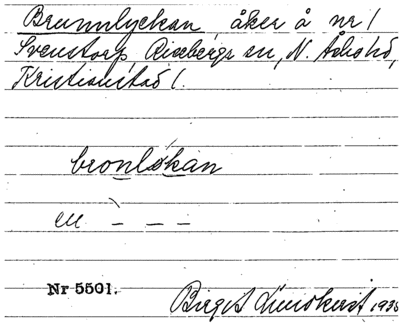 Brunnlyckan, åker å nr 1
Svenstorp, Riseberga sn, N. Åsbo hd,
Kristianstad l.
bronløkan
en – – –
Nr 5501.
Birgit Lindkvist 1935